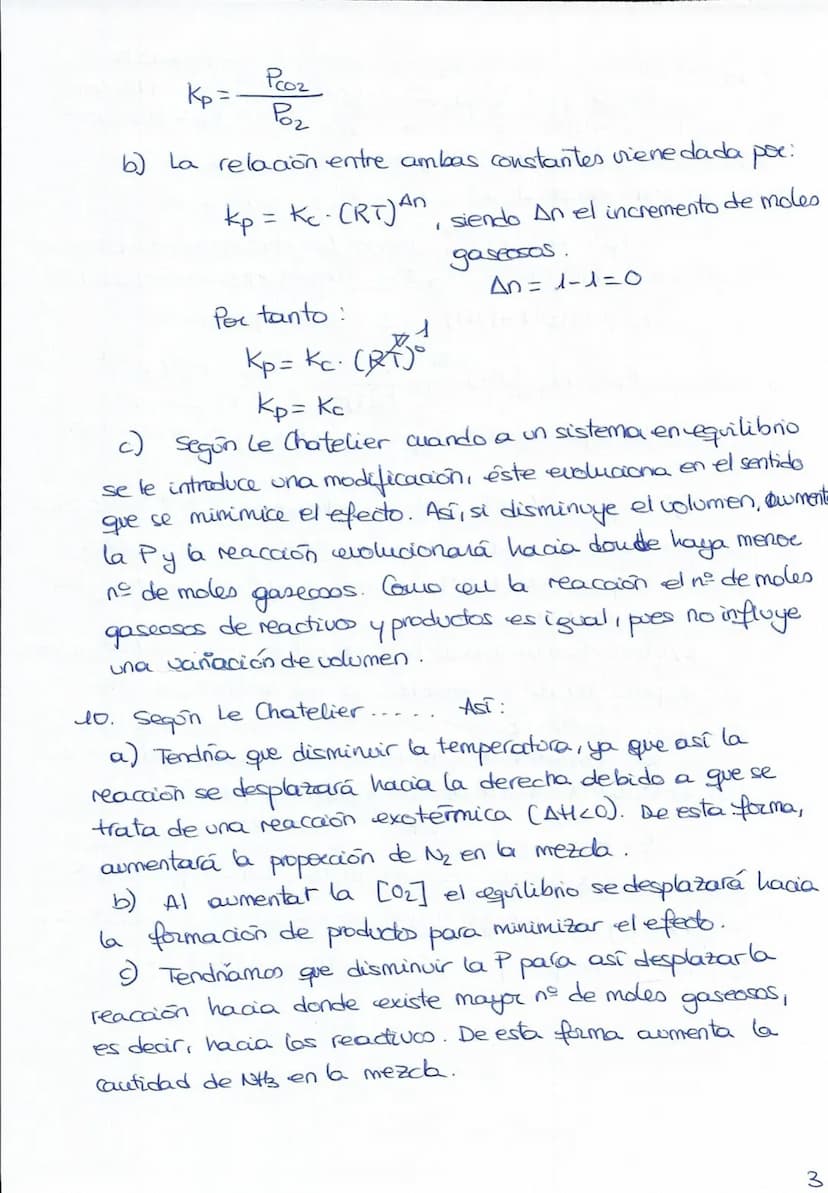 Kp = PCO2 / PO2
b) La relación entre ambas constantes viene dada por:
Kp = Kc · (RT)^Δn, siendo Δn el incremento de moles
gaseosos.
Δn = 1-1=0
Por tanto:
Kp = Kc · (RT)^0 1
Kp = Kc
c) Según Le Chatelier cuando a un sistema en equilibrio
se le introduce una modificación, éste evoluciona en el sentido
que se minimice el efecto. Así, si disminuye el volumen, aumenta
la P y la reacción evolucionará hacia donde haya menor
nº de moles gaseosos. Como en la reacción el nº de moles
gaseosos de reactivos y productos es igual, pues no influye
una variación de volumen.
10. Según Le Chatelier ..... Así:
a) Tendría que disminuir la temperatura, ya que así la
reacción se desplazará hacia la derecha debido a que se
trata de una reacción exotérmica (ΔH<0). De esta forma,
aumentará la proporción de N2 en la mezcla.
b) Al aumentar la [O2] el equilibrio se desplazará hacia
la formación de productos para minimizar el efecto.
c) Tendríamos que disminuir la P para así desplazar la
reacción hacia donde existe mayor nº de moles gaseosos,
es decir, hacia los reactivos. De esta forma aumenta la
cantidad de NH3 en la mezcla.
3